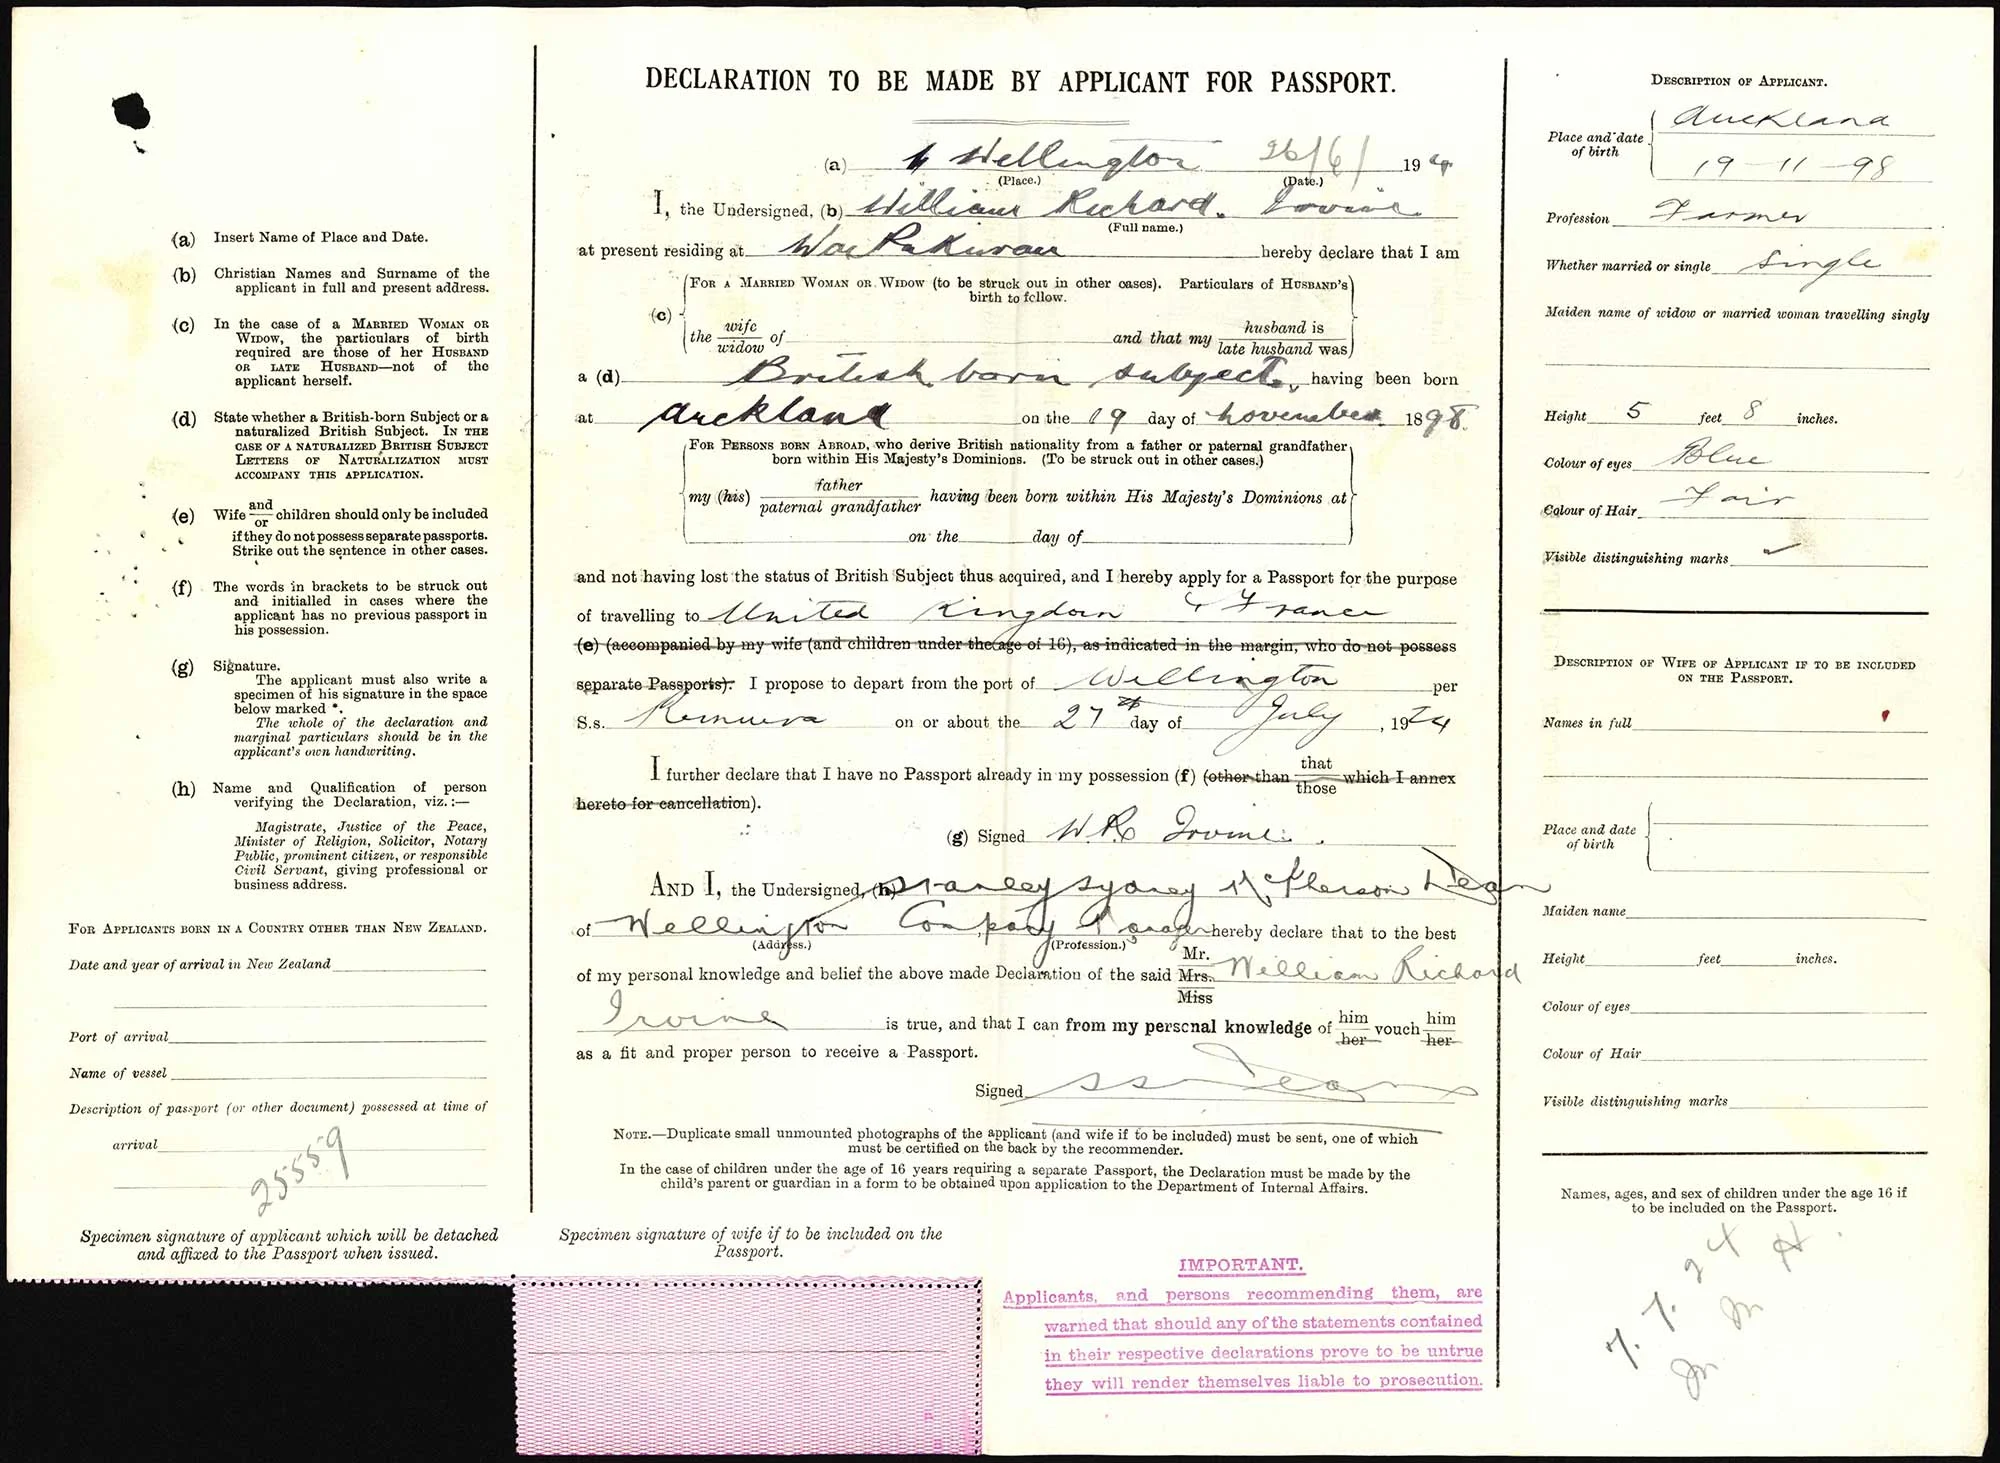 (a) Insert Name of Place and Date.
(b) Christian Names and Surname of the
applicant in full and present address.
(c) In the case of a MARRIED WOMAN OR
WIDOW, the particulars of birth
required are those of her HUSBAND
OR LATE HUSBAND—not of the
applicant herself.
(d) State whether a British-born Subject or a
naturalized British Subject. IN THE
CASE OF A NATURALIZED BRITISH SUBJECT
LETTERS OF NATURALIZATION MUST
ACCOMPANY THIS APPLICATION.
(e) Wife and/or children should only be included
if they do not possess separate passports.
Strike out the sentence in other cases.
(f) The words in brackets to be struck out
and initialled in cases where the
applicant has no previous passport in
his possession.
(g) Signature.
The applicant must also write a
specimen of his signature in the space
below marked *.
The whole of the declaration and
marginal particulars should be in the
applicant's own handwriting.
(h) Name and Qualification of person
verifying the Declaration, viz.:—
Magistrate, Justice of the Peace,
Minister of Religion, Solicitor, Notary
Public, prominent citizen, or responsible
Civil Servant, giving professional or
business address.
FOR APPLICANTS BORN IN A COUNTRY OTHER THAN NEW ZEALAND.
Date and year of arrival in New Zealand
Port of arrival
Name of vessel
Description of passport (or other document) possessed at time of
arrival
25559
Specimen signature of applicant which will be detached
and affixed to the Passport when issued.
DECLARATION TO BE MADE BY APPLICANT FOR PASSPORT.
(a) Wellington 26/6/ 1924
(Place.) (Date.)
I, the Undersigned, (b) William Richard Irvine
(Full name.)
at present residing at hereby declare that I am
FOR A MARRIED WOMAN OR WIDOW (to be struck out in other cases). Particulars of HUSBAND'S
birth to follow.
(c) the wife/widow of and that my husband is/late husband was
a (d) British born subject, having been born
at Auckland on the 19 day of November 1898
FOR PERSONS BORN ABROAD, who derive British nationality from a father or paternal grandfather
born within His Majesty's Dominions. (To be struck out in other cases.)
my (his) father/paternal grandfather having been born within His Majesty's Dominions at
on the day of
and not having lost the status of British Subject thus acquired, and I hereby apply for a Passport for the purpose
of travelling to United Kingdom & France
(e) (accompanied by my wife (and children under the age of 16), as indicated in the margin, who do not possess
separate Passports). I propose to depart from the port of Wellington per
S.s. Remuera on or about the 27th day of July, 1924
I further declare that I have no Passport already in my possession (f) (other than that/those which I annex
hereto for cancellation).
(g) Signed W R Irvine.
AND I, the Undersigned, (h) Stanley Sydney McPherson Dean
of Wellington Company Manager hereby declare that to the best
(Address.) (Profession.)
of my personal knowledge and belief the above made Declaration of the said Mr. Mrs. Miss William Richard
Irvine is true, and that I can from my personal knowledge of him/her vouch him/her
as a fit and proper person to receive a Passport.
Signed SS Dean
NOTE.—Duplicate small unmounted photographs of the applicant (and wife if to be included) must be sent, one of which
must be certified on the back by the recommender.
In the case of children under the age of 16 years requiring a separate Passport, the Declaration must be made by the
child's parent or guardian in a form to be obtained upon application to the Department of Internal Affairs.
Specimen signature of wife if to be included on the
Passport.
IMPORTANT.
Applicants, and persons recommending them, are
warned that should any of the statements contained
in their respective declarations prove to be untrue
they will render themselves liable to prosecution.
DESCRIPTION OF APPLICANT.
Place and date of birth Auckland
19-11-98
Profession Farmer
Whether married or single Single
Maiden name of widow or married woman travelling singly
Height 5 feet 8 inches.
Colour of eyes Blue
Colour of Hair Fair
Visible distinguishing marks
DESCRIPTION OF WIFE OF APPLICANT IF TO BE INCLUDED
ON THE PASSPORT.
Names in full
Place and date
of birth
Maiden name
Height feet inches.
Colour of eyes
Colour of Hair
Visible distinguishing marks
Names, ages, and sex of children under the age 16 if
to be included on the Passport.
7.7.24